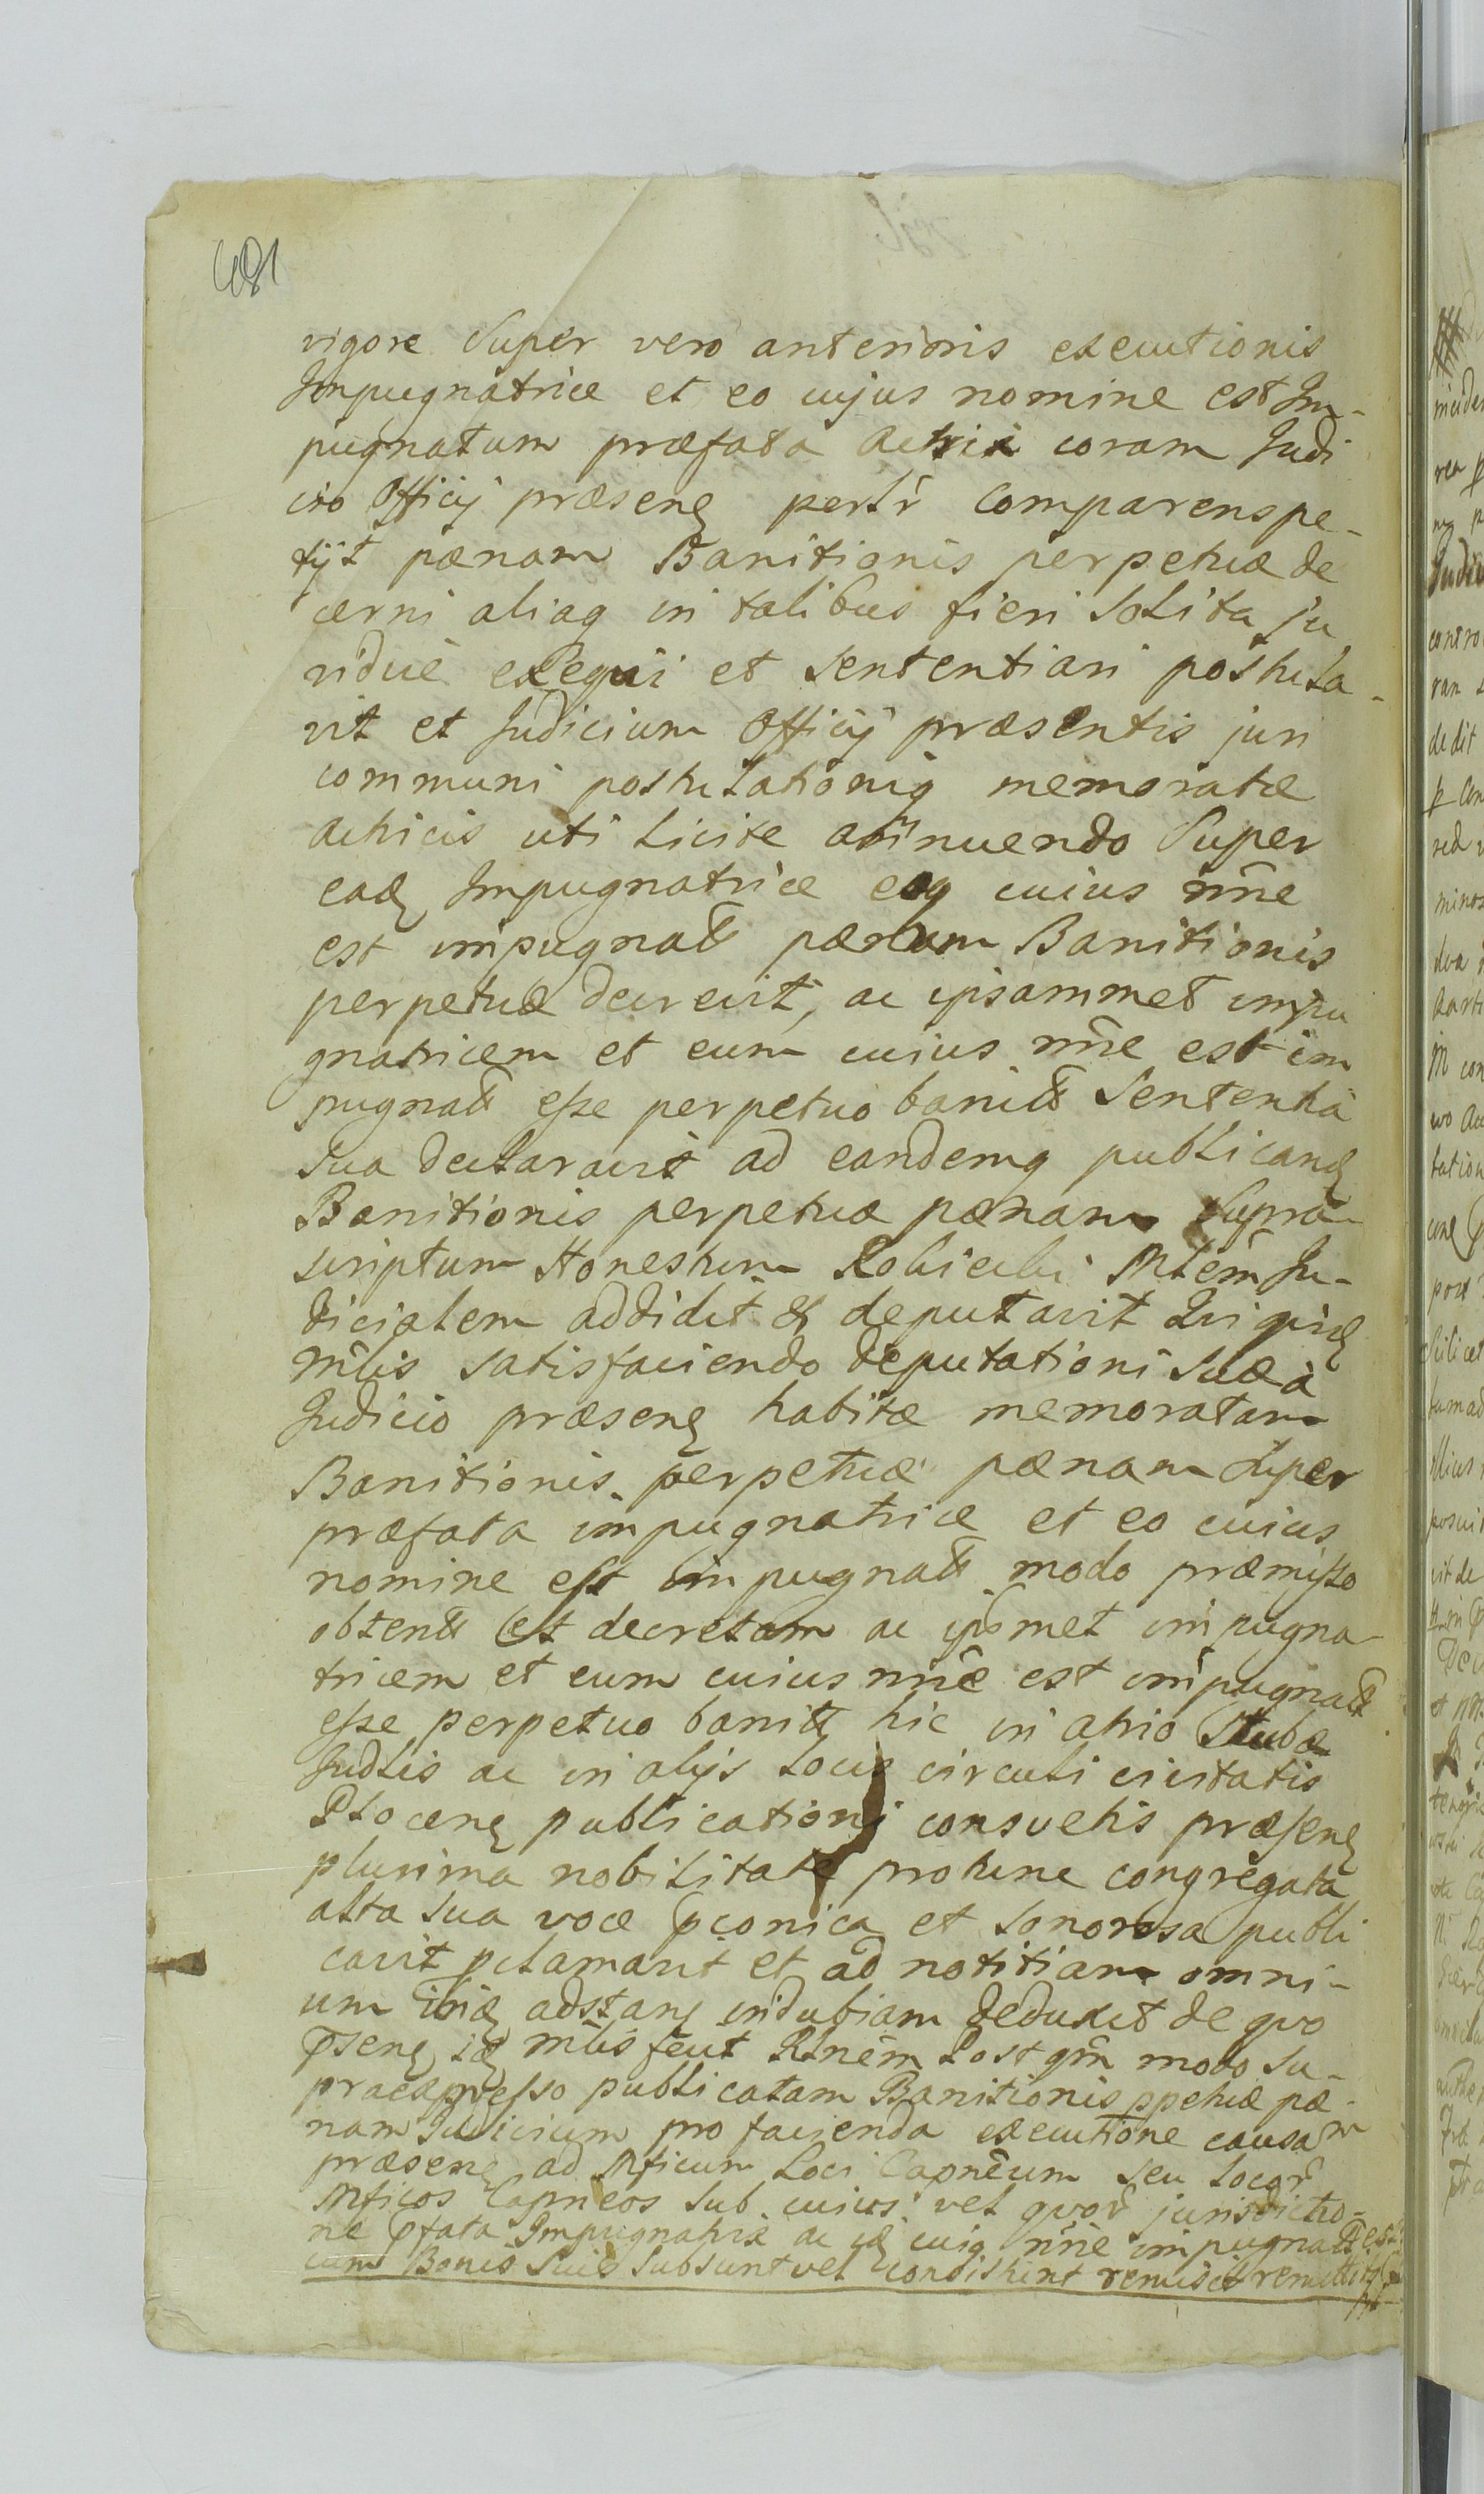 481
vigore Super vero anterioris executionis
Impugnatrice et eo cujus nomine est Im-
pugnatum præfata Actrix coram Judi
cio Officij præsenę pertr̃ Comparens pe-
tijt pænam Banitionis perpetuæ de
cerni aliaq in talibus fieri Solita ju
ridicè exequi et Sententiari postula-
vit et Judicium Officij præsentis juri
communi postulationiq memoratæ
Actricis uti Licite annuendo Super
eadę Impugnatrice eoq cuius nn̄e
est impugnatt pænam Banitionis
perpetuæ decrevit, ac ipsammet impu
gnatricem et eum cuius nn̄e est im
pugnatt esse perpetuo banitt Sententia
Sua declaravit ad eandemq publicandę
Banitionis perpetuæ pænam Supra-
scriptum Honestum Mtlem Ju-
dicialem addidit & deputavit Qui quidę
mtlis satisfaciendo deputationi Suæ à
Judicio præsenę habitæ memoratam
Banitionis perpetuæ pænam Super
præfata impugnatrice et eo cuius
nomine est impugnatt modo præmisso
obtentt et decretam ac ipsmet impugna-
tricem et eum cuius nn̄e est impugnatt
esse perpetuo banitt hic in atrio Stubæ
Judlis ac in alijs Locis circuli civitatis
Plocenę publicationi consvetis præsenę
plurima nobilitate protunc congregata
alta Sua voce pconica et Sonorosa publi
cavit plamavit et ad notitiam omni-
um ibidę adstanę indubiam deduxit de quo
pseną idę mtlis fecit Rlnem Post qm̃ modo su-
praexpresso publicatam Banitionis ppetuæ pæ-
nam Judicium pro facienda executione causam
præsenę ad Mficum Loci Capneum seu Locor̃
Mficos Capneos Sub cuius vel quor̃ jurisdictio-
ne pfata Impugnatrix ac is cuiq nn̄e impugnatt est
cum Bonis Suis Subsunt vel consistunt remisit remittitq